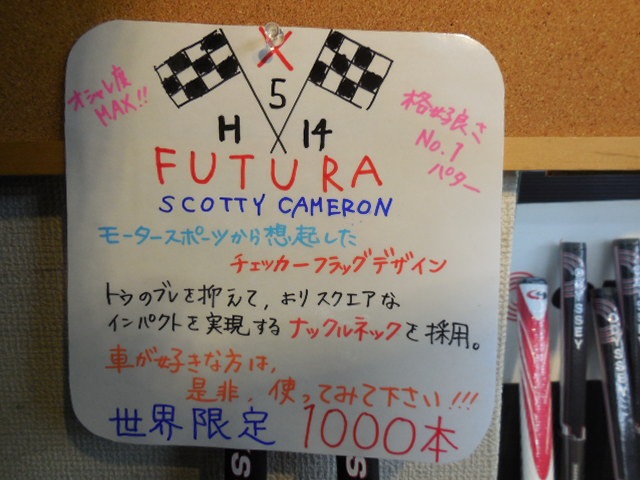 オシャレ度
MAX!!
X
5
H 14
格好良さ
No.1
パター
FUTURA
SCOTTY CAMERON
モータースポーツから想起した
チェッカーフラッグデザイン
トゥのブレを抑えて、よりスクエアな
インパクトを実現するナックルネックを採用。
車が好きな方は、
是非、使ってみて下さい!!!
世界限定 1000本